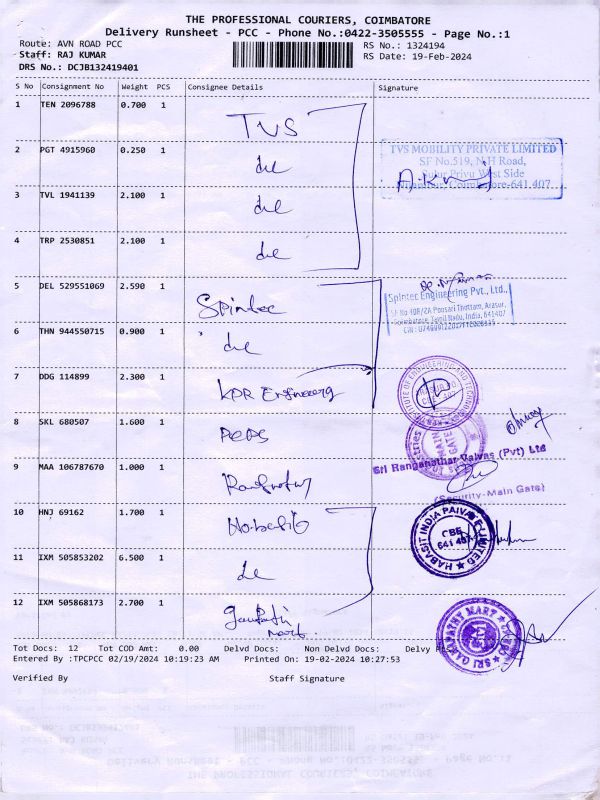 THE PROFESSIONAL COURIERS, COIMBATORE
Delivery Runsheet - PCC - Phone No.:0422-3505555 - Page No.:1
Route: AVN ROAD PCC
RS No.: 1324194
Staff: RAJ KUMAR
RS Date: 19-Feb-2024
DRS No.: DCJB132419401
S No Consignment No Weight PCS Consignee Details Signature
1 TEN 2096788 0.700 1 TVS
2 PGT 4915960 0.250 1
TVS MOBILITY PRIVATE LIMITED
SF No.519, N.H Road,
Sulur Privu West Side
Coimbatore-641 407
3 TVL 1941139 2.100 1
4 TRP 2530851 2.100 1
5 DEL 529551069 2.590 1 Spintec
Spintec Engineering Pvt., Ltd.,
SF No 40R/2A Ponsari Thottam, Arasur,
Coimbatore, Tamil Nadu, India, 641407
6 THN 944550715 0.900 1
7 DDG 114899 2.300 1 KPR Engineering
INSTITUTE OF ENGINEERING AND TECHNOLOGY
8 SKL 680507 1.600 1
MAIN GATE
9 MAA 106787670 1.000 1
Sri Ranganathar Valves (Pvt) Ltd
(Security-Main Gate)
10 HNJ 69162 1.700 1
HABASIT INDIA PAIVATE LIMITED
CBE
641 407
11 IXM 505853202 6.500 1
12 IXM 505868173 2.700 1
mart
SRI GANAPATHY MART
Tot Docs: 12 Tot COD Amt: 0.00 Delvd Docs: Non Delvd Docs: Delvy
Entered By :TPCPCC 02/19/2024 10:19:23 AM Printed On: 19-02-2024 10:27:53
Verified By Staff Signature